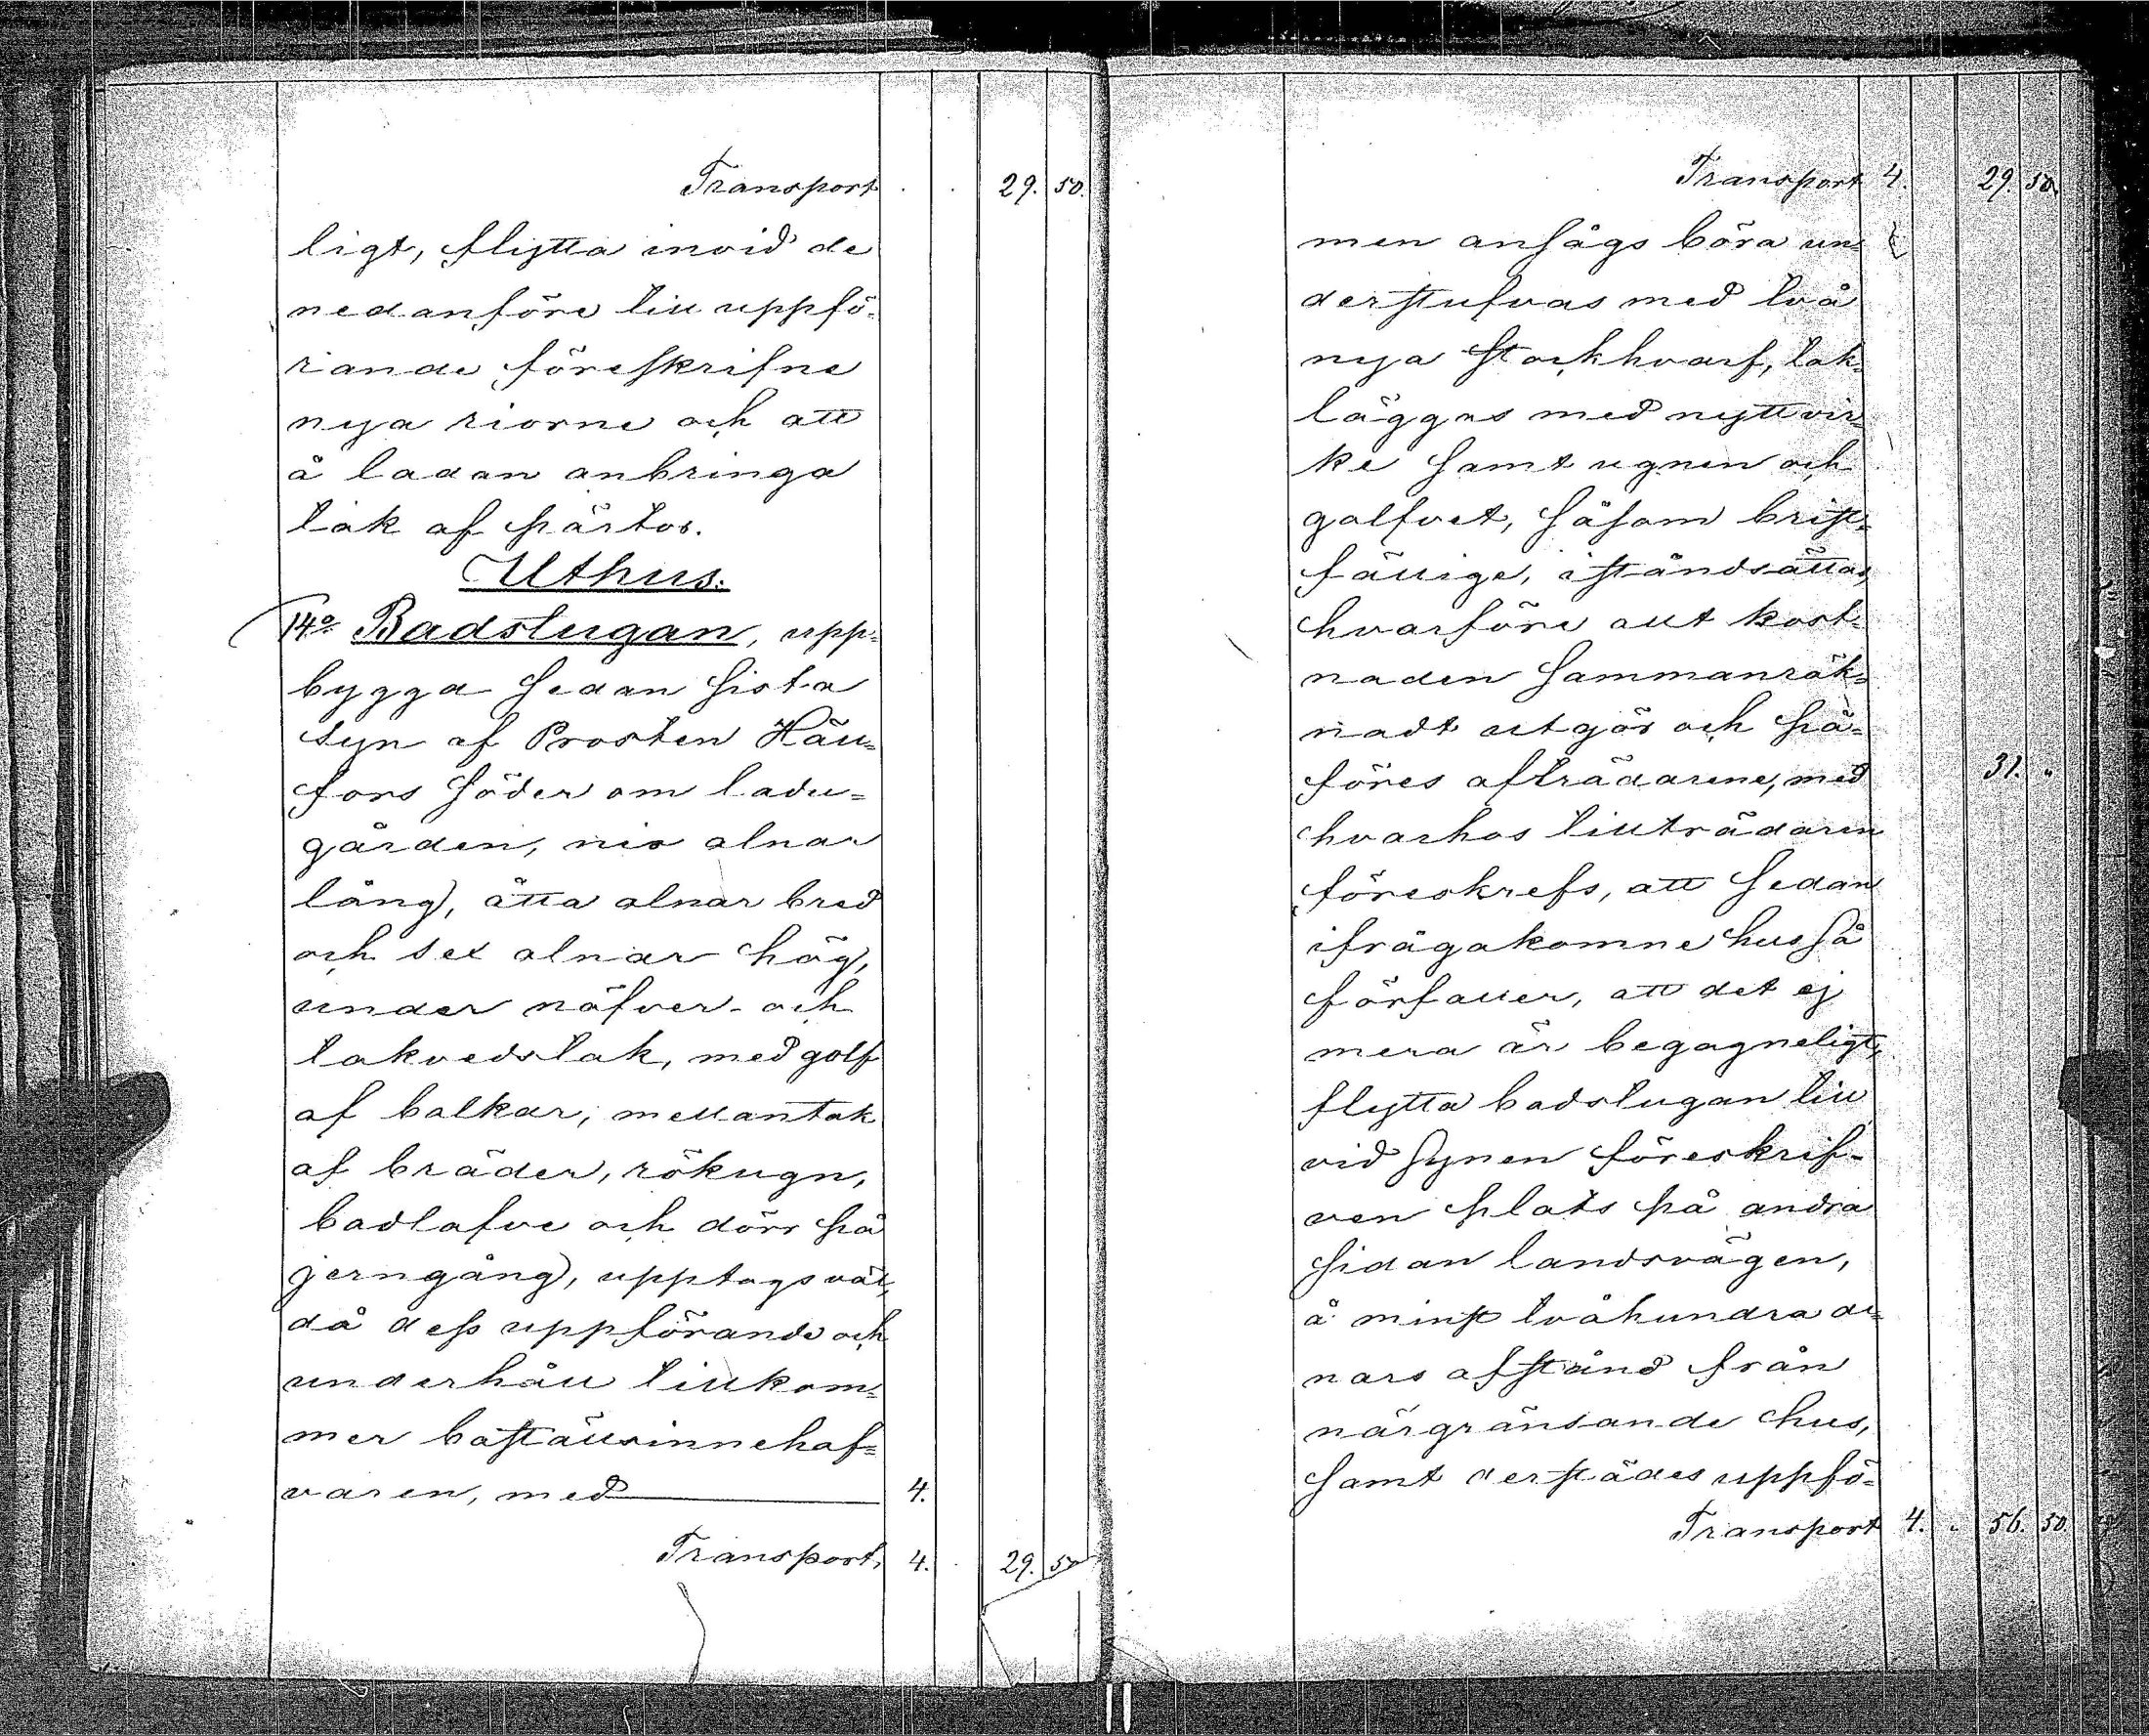 Transport . . 29. 50.
ligt, flytta invid de
nedanföre till uppfö-
rande föreskrifne
nya riorne och att
å ladan anbringa
tak af pärtor.
Uthus.
14o Badstugan, upp-
bygga sedan sista
syn af Prosten Häll-
fors söder om ladu-
gården, nio alnar
lång, åtta alnar bred
och sex alnar hög,
under näfver- och
takvedstak, med golf
af balkar, mellantak
af bräder, rökugn,
badlafve och dörr på
jerngång, upptogs väl,
då dess uppförande och
underhåll tillkom-
mer boställsinnehaf-
varen, med 4.
Transport, 4. . 29. 50
Transport 4. 29. 50.
men ansågs böra un-
derstufvas med två
nya stockhvarf, tak-
läggas med nytt vir-
ke samt ugnen och
golfvet, såsom brist-
fällige, iståndsättas,
hvarföre allt kost-
naden sammanräk-
nadt utgör och på-
föres afträdarene, med 31. "
hvarhos tillträdaren
föreskrefs, att sedan
ifrågakomne hus så
förfaller, att det ej
mera är begagneligt,
flytta badstugan till
vid synen föreskrif-
ven plats på andra
sidan landsvägen,
å minst tvåhundra al-
nars afstånd från
närgränsande hus,
samt derstädes uppfö-
Transport 4. " 56. 50